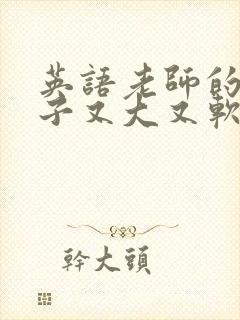 英語老師的
子又大又軟
幹大頭